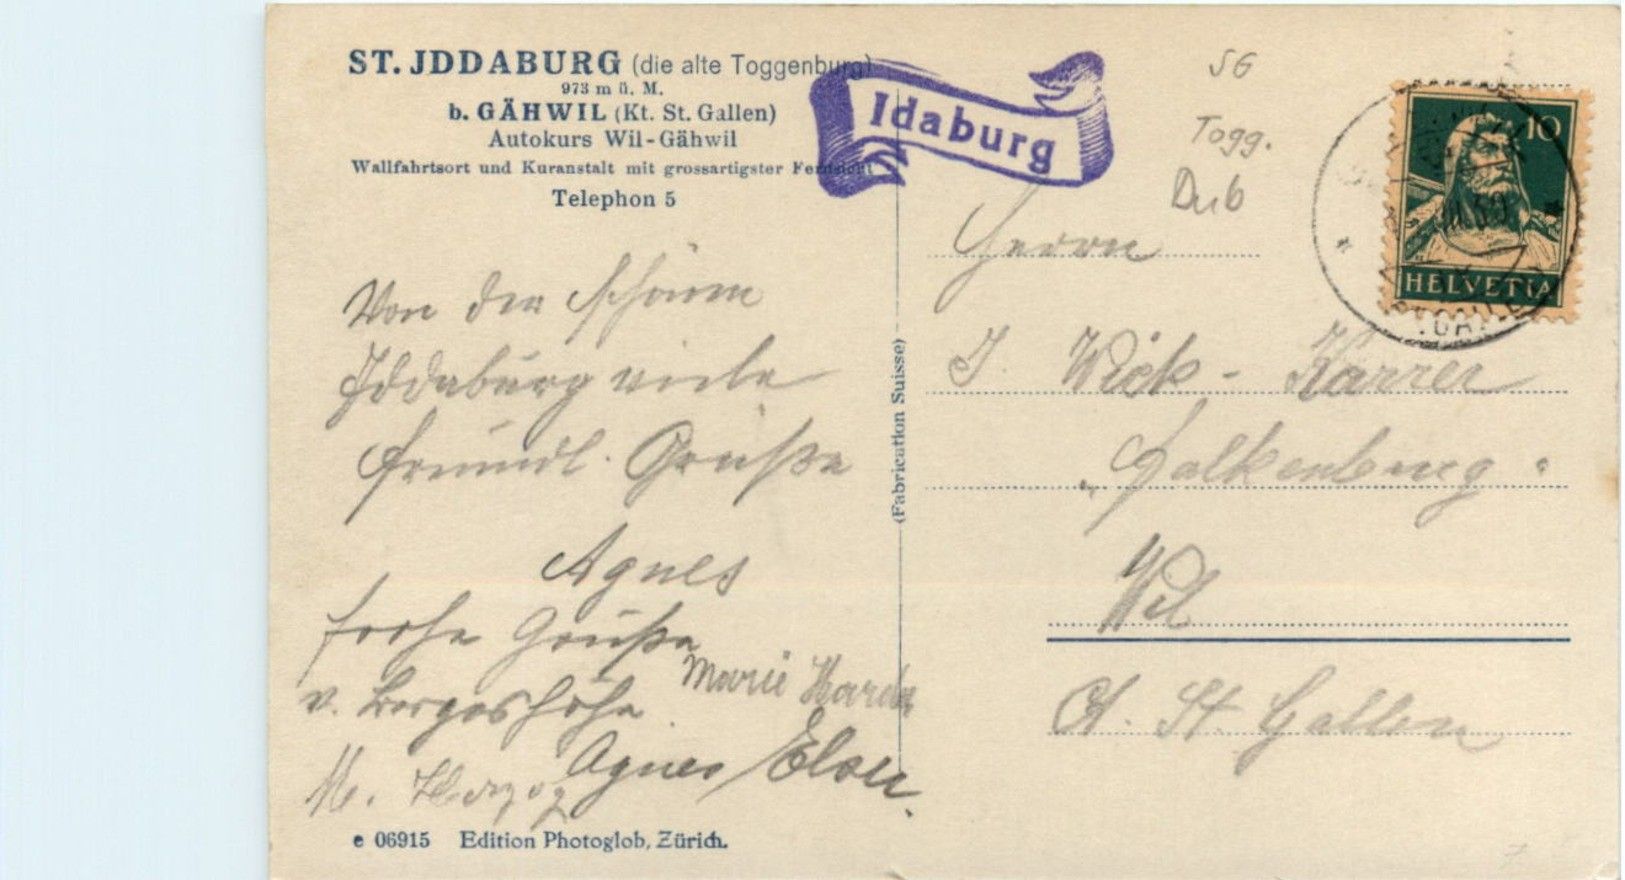 ST. JDDABURG (die alte Toggenburg)
973 m ü. M.
b. GÄHWIL (Kt. St. Gallen)
Autokurs Wil-Gähwil
Wallfahrtsort und Kuranstalt mit grossartigster Fernsicht
Telephon 5
Idaburg
SG
Togg.
Dub
10
HELVETIA
Von der schönen
Iddaburg viele
freundl. Grüße
Agnes
frohe Grüße
v. Bergeshöhe
Marie
M. Herzog
Agnes
(Fabrication Suisse)
Herrn
J. Wick - Karrer
„Falkenburg"
Wil
Ct. St. Gallen
e 06915 Edition Photoglob, Zürich.